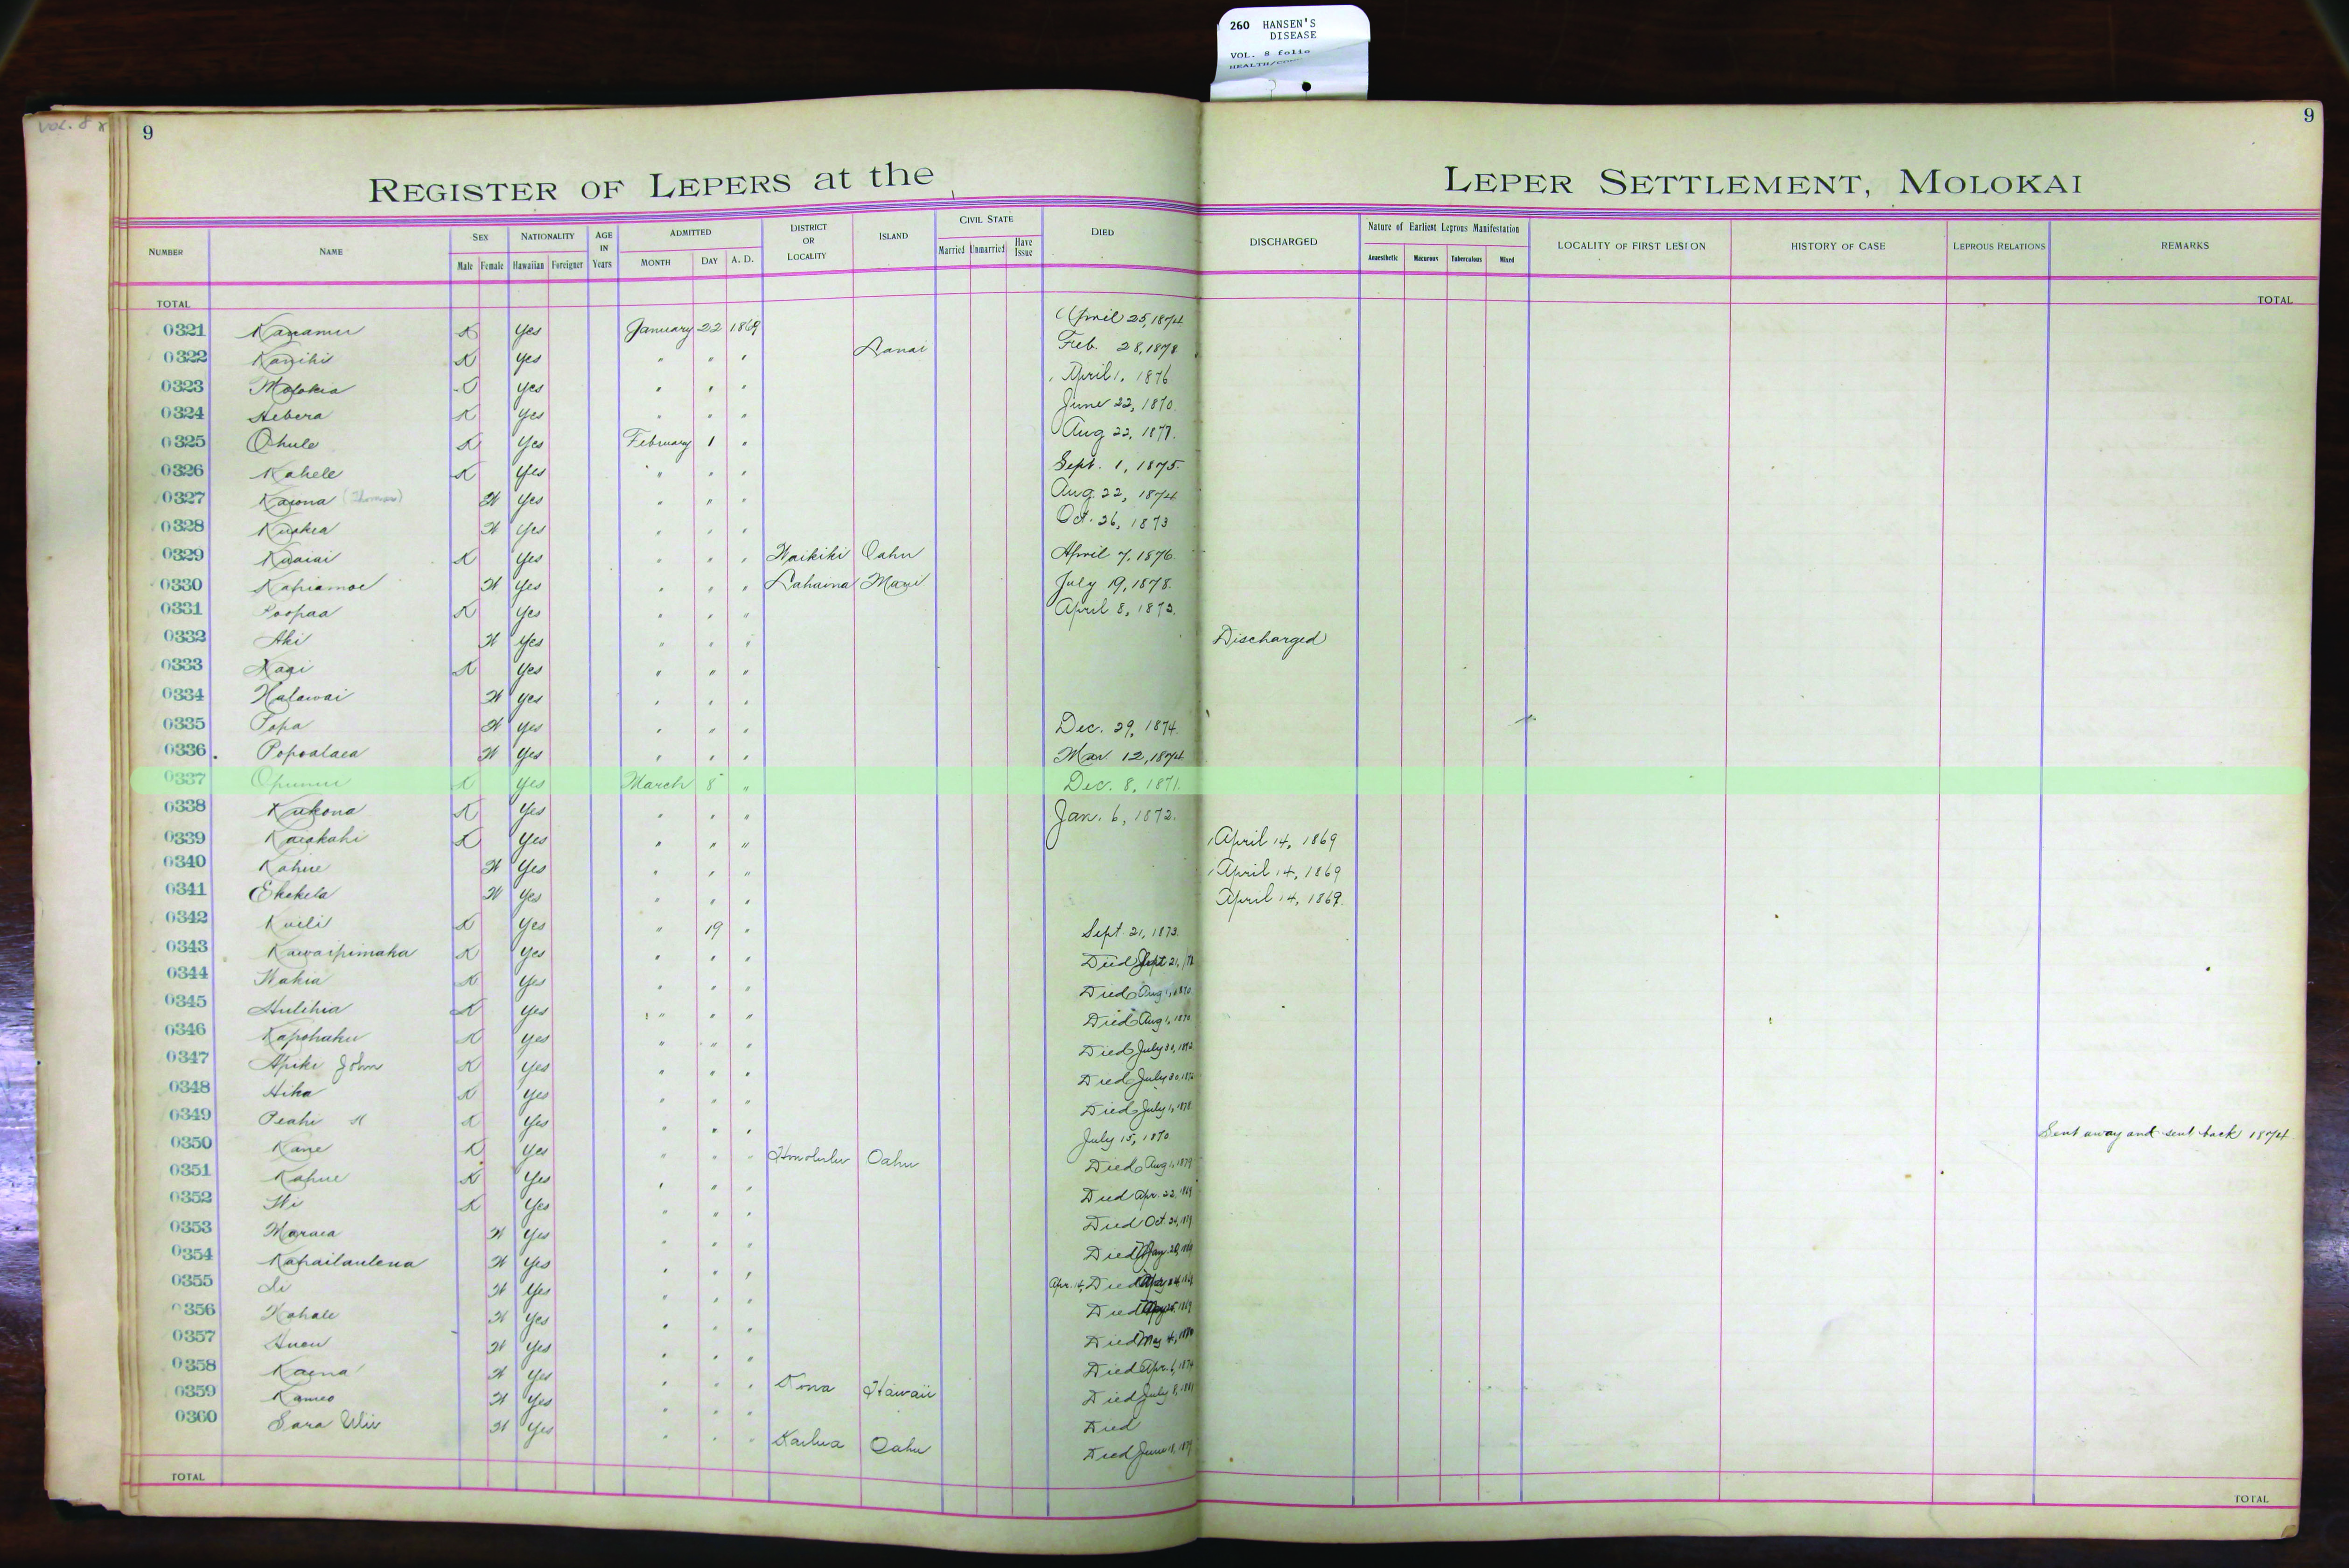 260 HANSEN'S
DISEASE
VOL. 8 folio
VOL. 8
9
9
REGISTER OF LEPERS at the LEPER SETTLEMENT, MOLOKAI
NUMBER NAME SEX Male Female NATIONALITY Hawaiian Foreigner AGE IN Years ADMITTED MONTH DAY A. D. DISTRICT OR LOCALITY ISLAND CIVIL STATE Married Unmarried Have Issue DIED DISCHARGED Nature of Earliest Leprous Manifestation Anaesthetic Macurous Tuberculous Mixed LOCALITY OF FIRST LESION HISTORY OF CASE LEPROUS RELATIONS REMARKS
TOTAL TOTAL
0321 Kanamu K Yes January 22 1869 April 25, 1874
0322 Kanihi K Yes " " " Lanai Feb. 28, 1878
0323 Molokia Yes " " " April 1, 1876
0324 Hebera K Yes " " " June 22, 1870
0325 Ohule K Yes February 1 " Aug 22, 1877.
0326 Kahele K Yes " " " Sept. 1, 1875
0327 Kaiona (Thomas) W Yes " " " Aug. 22, 1874
0328 W Yes " " " Oct. 26, 1873
0329 Kuaiai K Yes " " " Waikiki Oahu April 7, 1876
0330 Kahiamoe W Yes " " " Lahaina Maui July 19, 1878.
0331 Poopaa K Yes " " " April 8, 1873.
0332 Aki W Yes " " " Discharged
0333 K Yes " " "
0334 Halawai W Yes " " "
0335 Popa W Yes " " " Dec. 29, 1874
0336 Popoalaea W Yes " " " Mar 12, 1874
0337 Opunui K Yes March 8 " Dec. 8, 1871.
0338 Kukona K Yes " " " Jan. 6, 1872.
0339 Kaiakahi K Yes " " " April 14, 1869
0340 Kahue W Yes " " " April 14, 1869
0341 Ekekela W Yes " " " April 14, 1869
0342 Kuili K Yes " 19 " Sept. 21, 1873
0343 Kawaipimaka K Yes " " " Died Sept 21,
0344 Wahia K Yes " " " Died Aug 1, 1870
0345 Hulihia K Yes " " " Died Aug 1, 1870
0346 Kapohaku K Yes " " " Died July 30, 1872
0347 Apiki John K Yes " " " Died July 30, 1872
0348 Hika K Yes " " " Died July 1, 1878
0349 Peahi K Yes " " " July 15, 1870 Sent away and sent back 1874
0350 Kane K Yes " " " Honolulu Oahu Died Aug 1, 1879
0351 Kahue K Yes " " " Died Apr. 22, 1869
0352 Wi K Yes " " " Died Oct. 24,
0353 Maraea W Yes " " " Died 20,
0354 Kahailaulena W Yes " " " Apr. 14, Died
0355 W Yes " " " Died 1869
0356 Kahale W Yes " " " Died May 4,
0357 W Yes " " " Died Apr. 6, 1874
0358 Kaena W Yes " " " Kona Hawaii Died July 8, 1881
0359 Kameo W Yes " " " Died
0360 Sara W Yes " " " Kailua Oahu Died June 18, 1879
TOTAL TOTAL